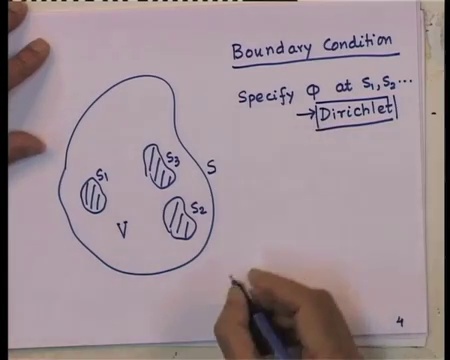 Boundary Condition
Specify Φ at S1, S2...
→ Dirichlet
S3
S
S1
S2
V
4